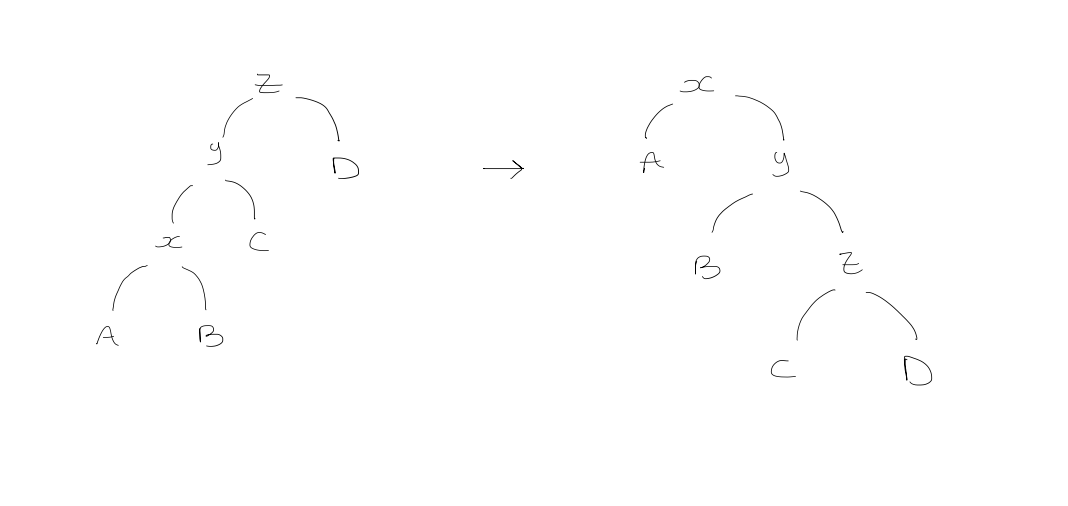 z
y D
x C
A B
→
x
A y
B z
C D